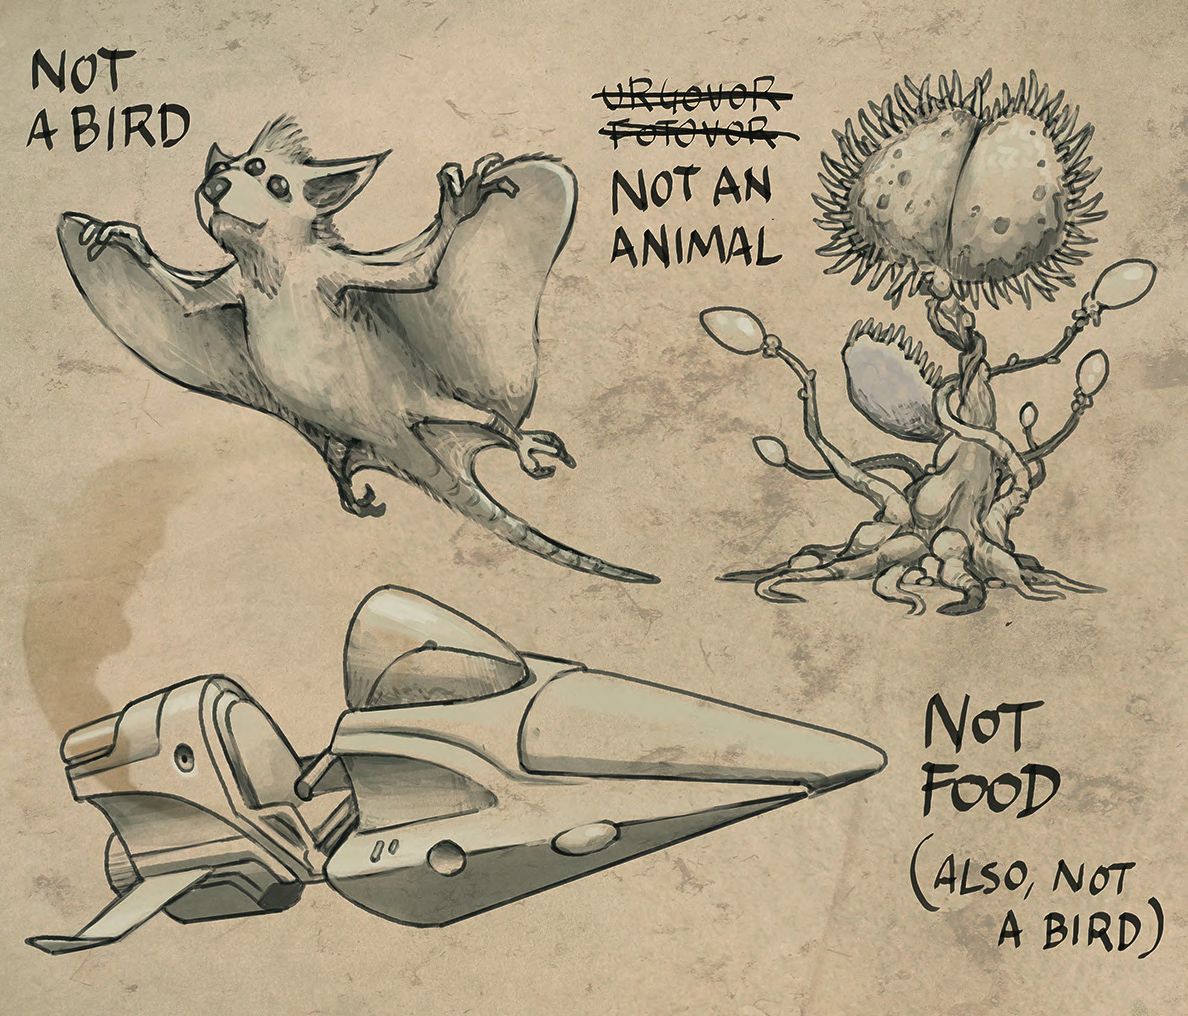 NOT
A BIRD
URGOVOR
FOTOVOR
NOT AN
ANIMAL
NOT
FOOD
(ALSO, NOT
A BIRD)